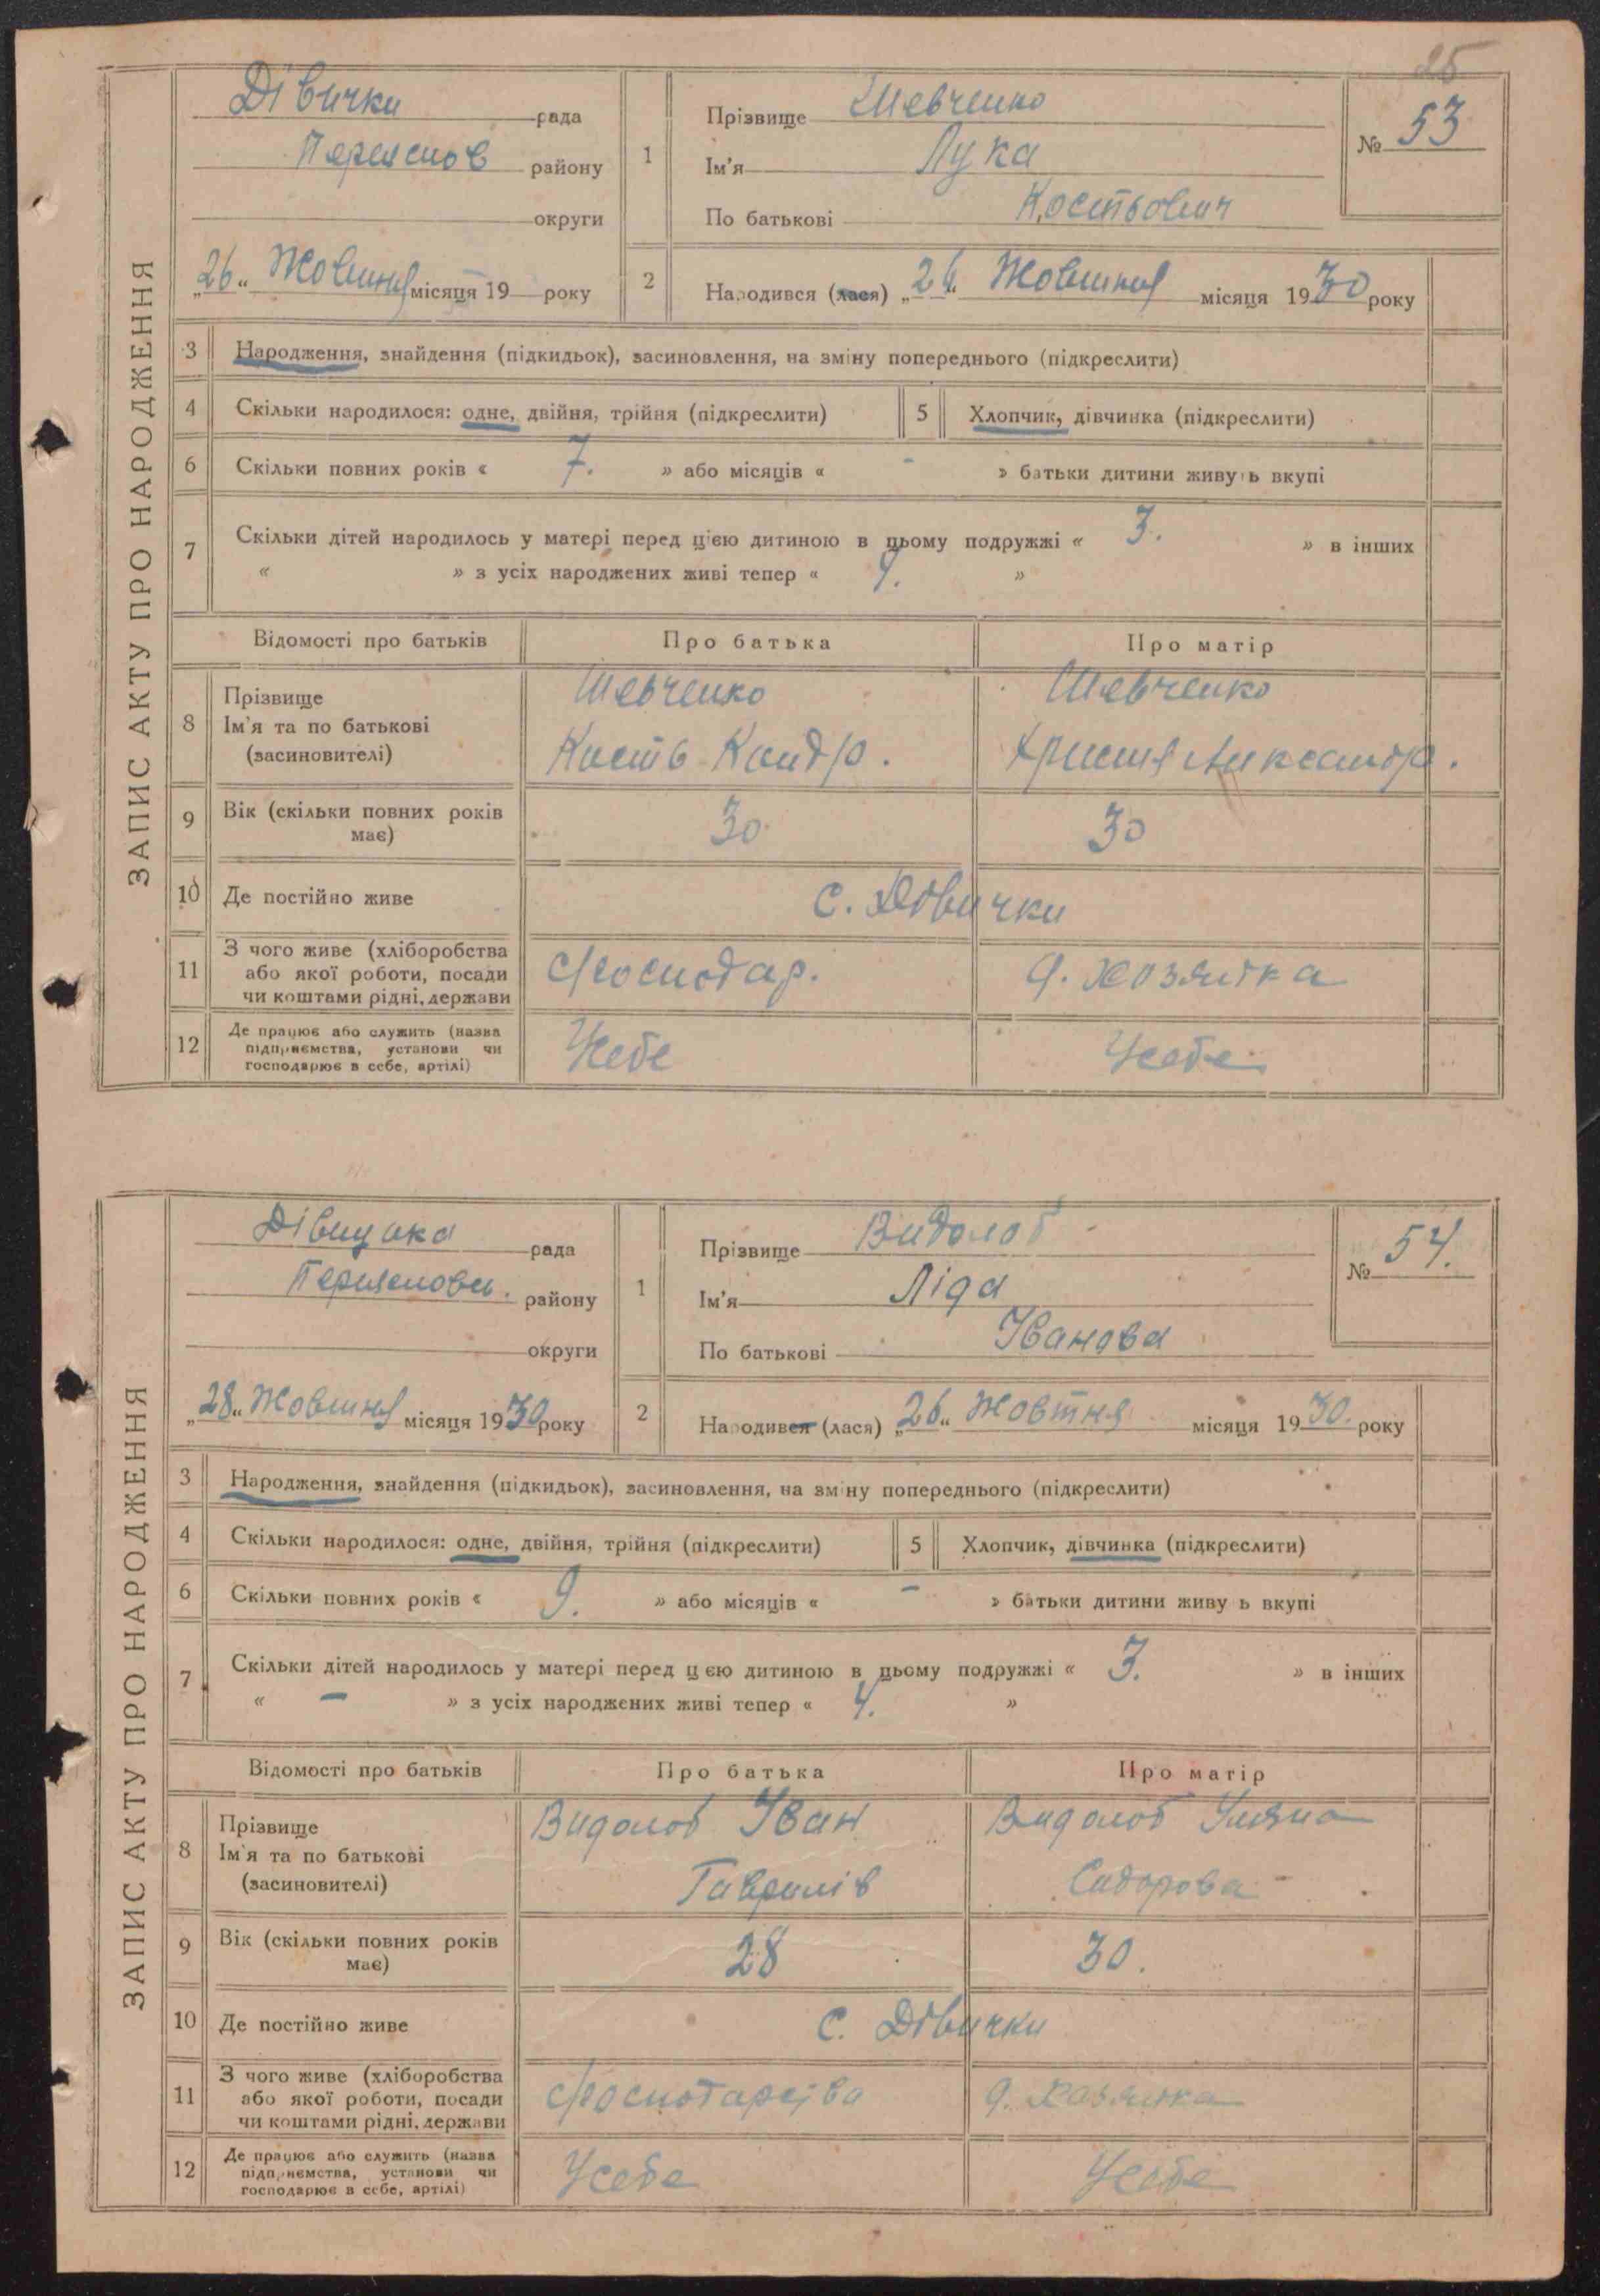 25
ЗАПИС АКТУ ПРО НАРОДЖЕННЯ
Дівички рада
Переяслов району
округи
„26“ Жовтня місяця 19 року
1
Прізвище Шевченко
Ім'я Лука
По батькові Костьович
№ 53
2
Народився (лася) „26“ Жовтня місяця 1930 року
3 Народження, знайдення (підкидьок), засиновлення, на зміну попереднього (підкреслити)
4 Скільки народилося: одне, двійня, трійня (підкреслити) 5 Хлопчик, дівчинка (підкреслити)
6 Скільки повних років « 7. » або місяців « - » батьки дитини живуть вкупі
7 Скільки дітей народилось у матері перед цією дитиною в цьому подружжі « 3. » в інших
« » з усіх народжених живі тепер « 4. »
Відомості про батьків Про батька Про матір
8 Прізвище Шевченко Шевченко
Ім'я та по батькові Кость Кондр. Христя Александр.
(засиновителі)
9 Вік (скільки повних років має) 30 30
10 Де постійно живе с. Дівички
11 З чого живе (хліборобства
або якої роботи, посади Господар. Д. хозяйка
чи коштами рідні, держави
12 Де працює або служить (назва
підприємства, установи чи Усебе Усебе
господарює в себе, артілі)
ЗАПИС АКТУ ПРО НАРОДЖЕННЯ
рада
Переяслови. району
округи
„28“ Жовтня місяця 1930 року
1
Прізвище Видолоб
Ім'я Ліда
По батькові Іванова
№ 54.
2
Народився (лася) „26“ жовтня місяця 1930. року
3 Народження, знайдення (підкидьок), засиновлення, на зміну попереднього (підкреслити)
4 Скільки народилося: одне, двійня, трійня (підкреслити) 5 Хлопчик, дівчинка (підкреслити)
6 Скільки повних років « 9. » або місяців « - » батьки дитини живу ь вкупі
7 Скільки дітей народилось у матері перед цією дитиною в цьому подружжі « 3. » в інших
« — » з усіх народжених живі тепер « 4. »
Відомості про батьків Про батька Про матір
8 Прізвище Видолоб Іван Видолоб Уляна
Ім'я та по батькові Гаврилів Сидорова
(засиновителі)
9 Вік (скільки повних років має) 28 30.
10 Де постійно живе с. Дівички
11 З чого живе (хліборобства
або якої роботи, посади Господарства Д. хазяйка
чи коштами рідні, держави
12 Де працює або служить (назва
підприємства, установи чи Усебе Усебе
господарює в себе, артілі)